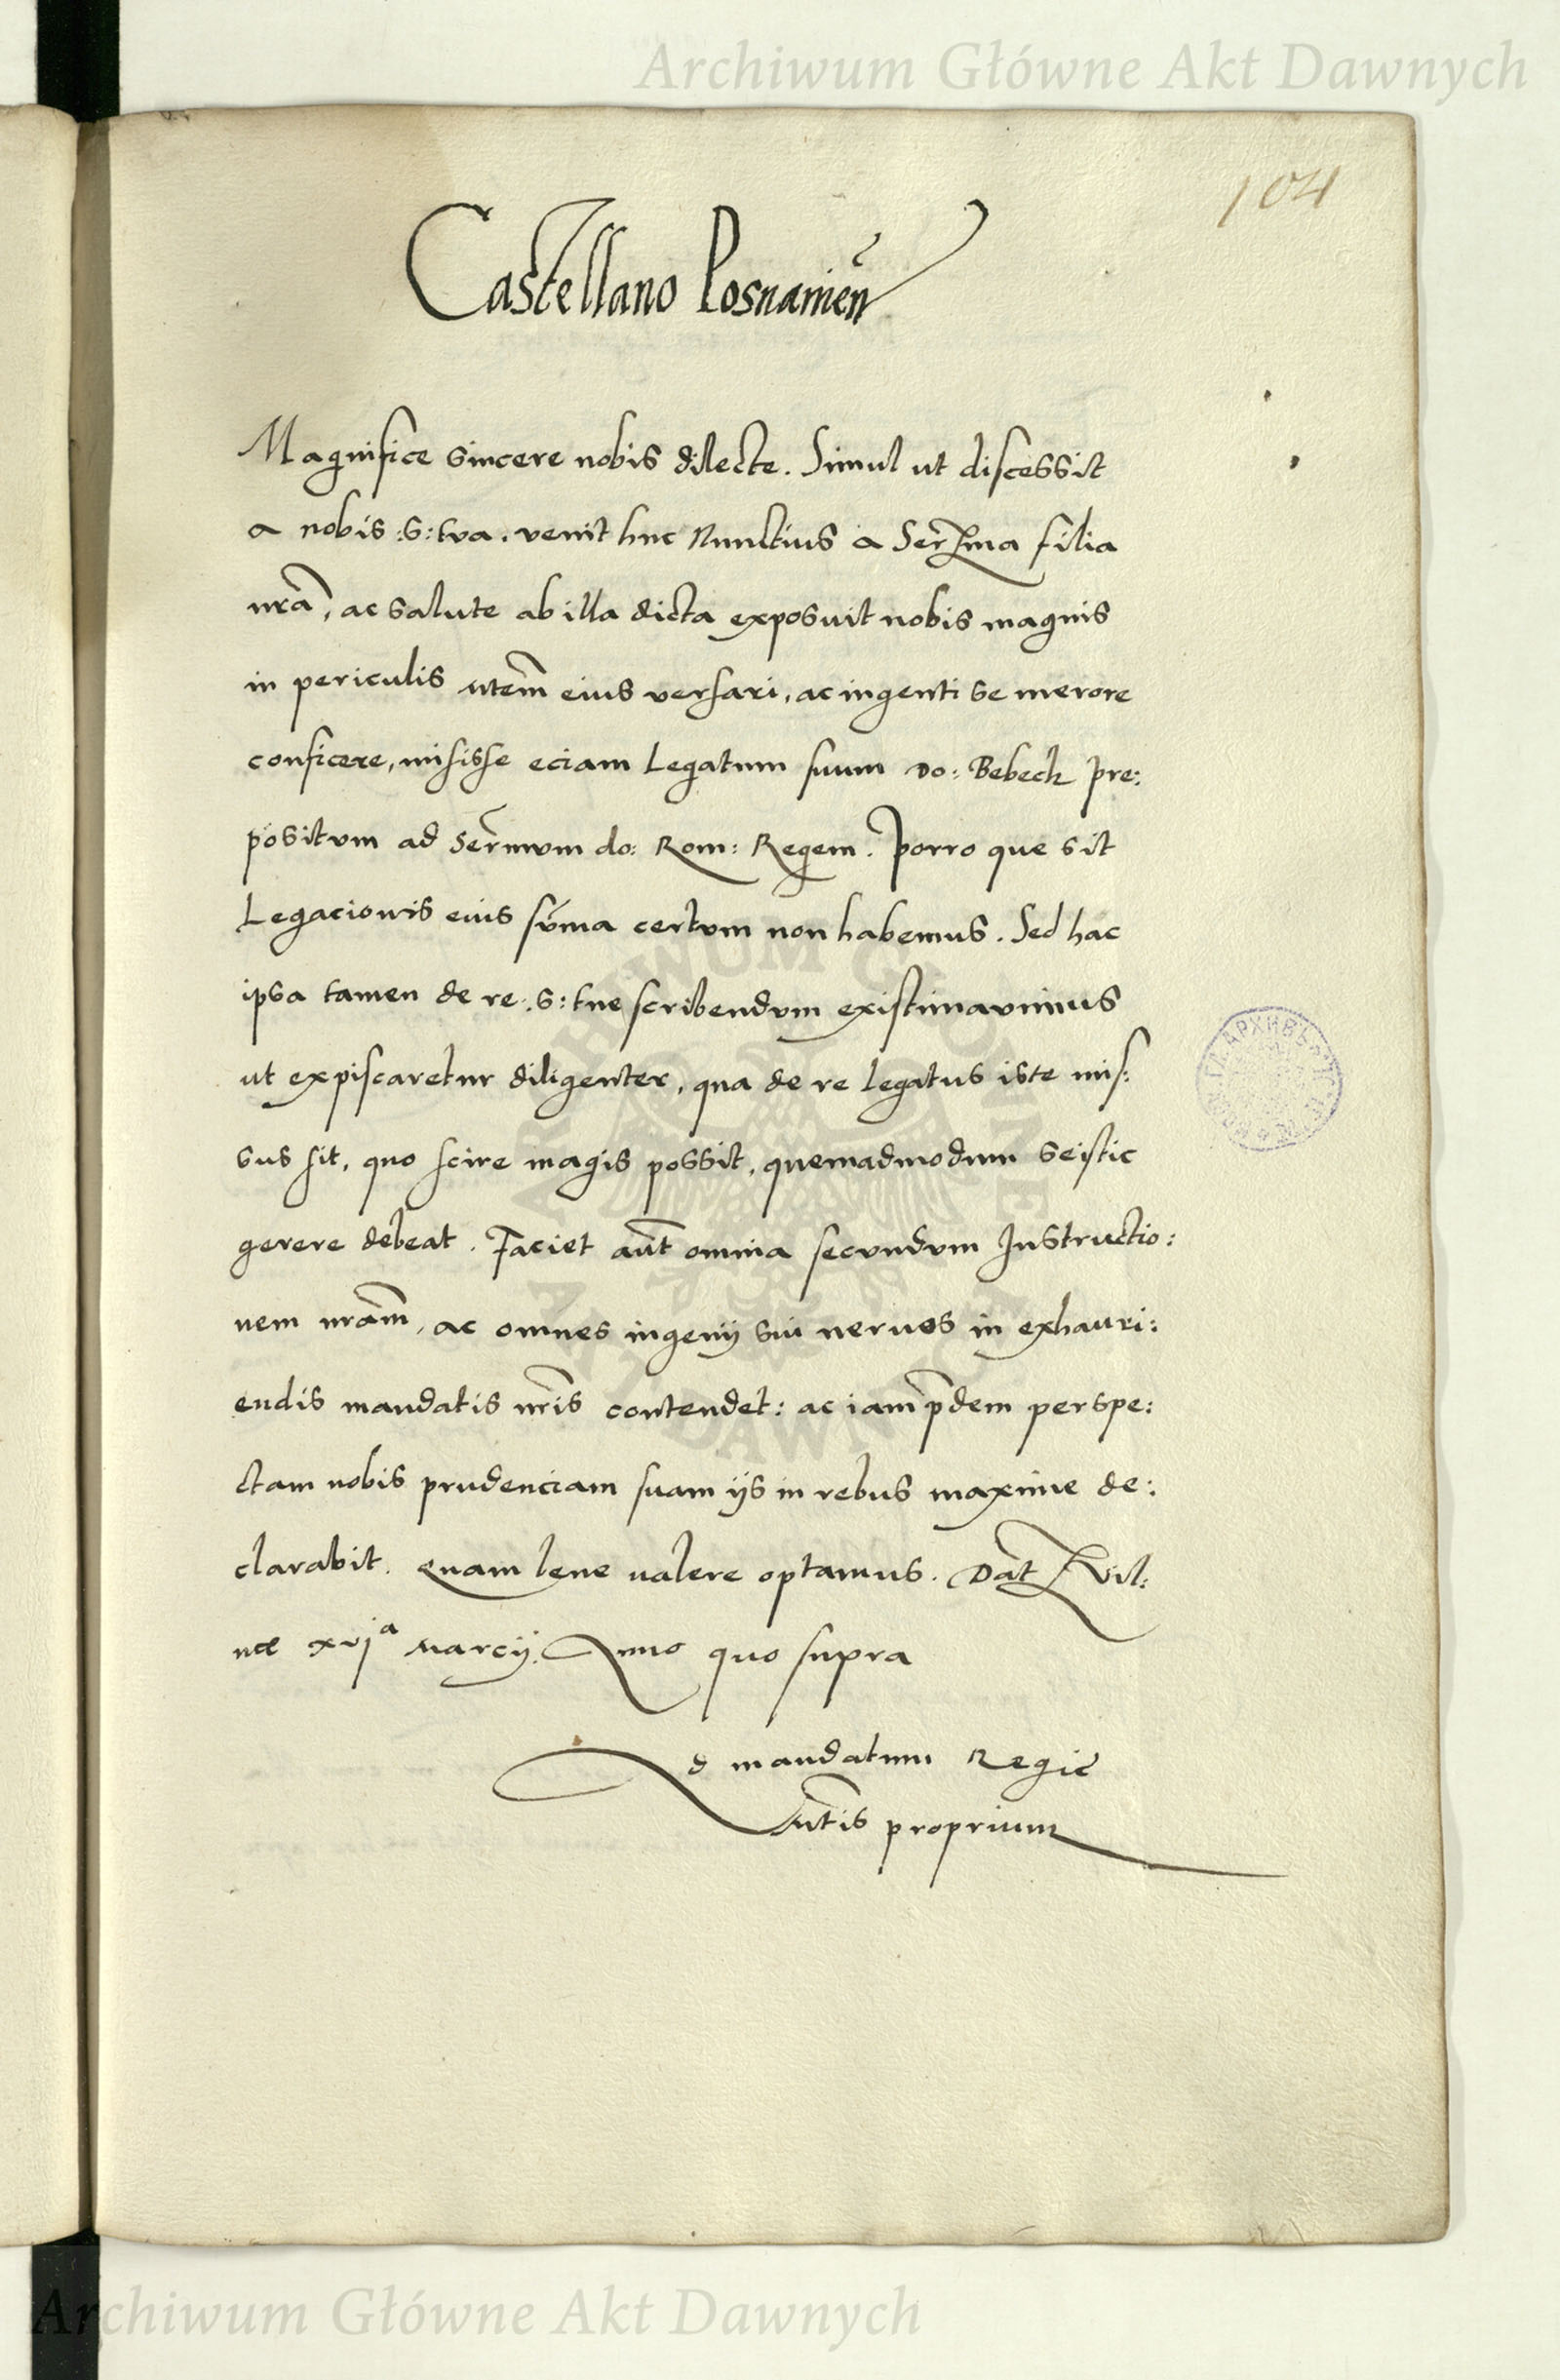 Archiwum Główne Akt Dawnych
104
Castellano Posnanień
Magnifice sincere nobis dilecte. Simul ut discessit
a nobis :S: tua. venit huc Nunctius a Serma filia
nra, ac salute ab illa dicta exposuit nobis magnis
in periculis Mtem eius versari, ac ingenti se merore
conficere, misisse eciam Legatum suum Do: Bebeck pre:
positum ad Sermum do: Rom: Regem. Porro que sit
Legacionis eius suma certum non habemus. Sed hac
ipsa tamen de re :S: tue scribendum existimavimus
ut expiscaretur diligenter, qua de re legatus iste mis:
sus sit, quo scire magis possit, quemadmodum se istic
gerere debeat. Faciet aut omnia secundum Instructio:
nem nram, ac omnes ingenij sui nervos in exhauri:
endis mandatis nris contendet: ac iam pdem perspe:
ctam nobis prudenciam suam ijs in rebus maxime de:
clarabit. Quam bene valere optamus. Dat Vil:
nae xvja Marcij. Anno quo supra
Ad mandatum Regie
Mtis proprium
ARCHIWUM GŁÓWNE
AKT DAWNYCH
Archiwum Główne Akt Dawnych